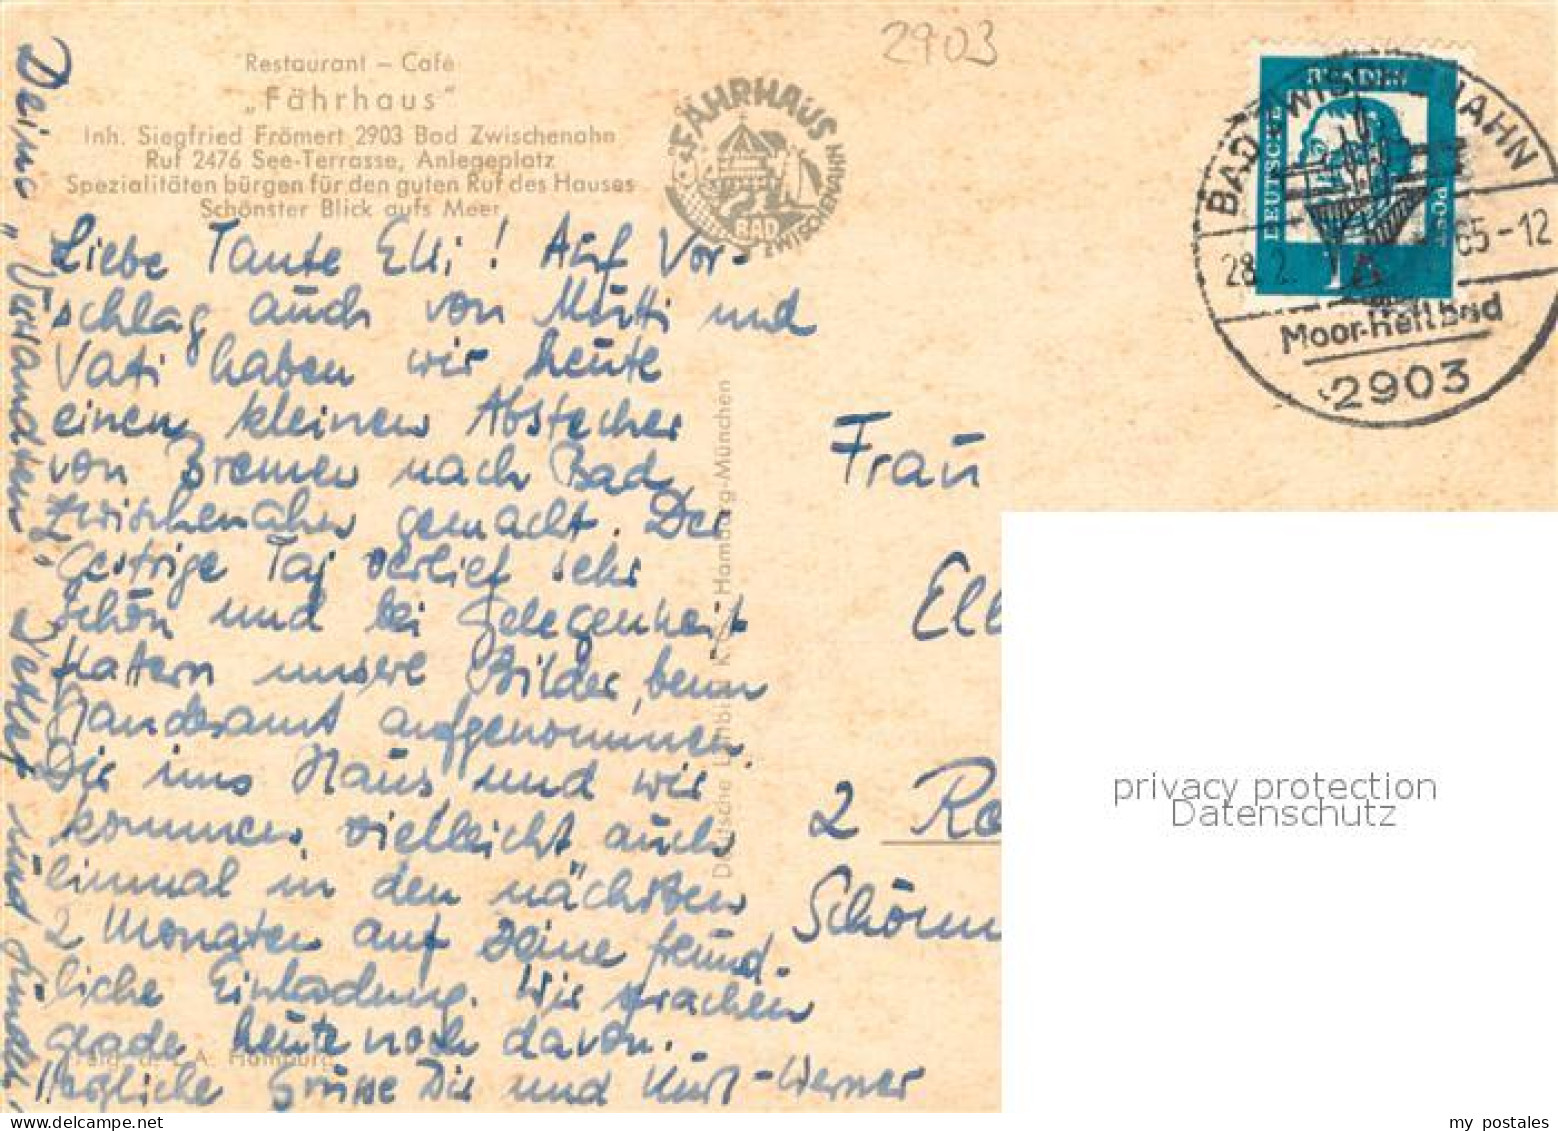 2903
Restaurant – Café
„Fährhaus"
Inh. Siegfried Frömert 2903 Bad Zwischenahn
Ruf 2476 See-Terrasse, Anlegeplatz
Spezialitäten bürgen für den guten Ruf des Hauses
Schönster Blick aufs Meer
FÄHRHAUS
BAD ZWISCHENAHN
DEUTSCHE BUNDESPOST
BAD ZWISCHENAHN
28.2. 65-12
Moor-Heilbad
2903
Liebe Tante Elli! Auf Vor-
schlag auch von Mutti und
Vati haben wir heute
einen kleinen Abstecher
von Bremen nach Bad
Zwischenahn gemacht. Der
gestrige Tag verlief sehr
schön und bei Gelegenheit
flattern unsere Bilder, beim
Standesamt aufgenommen,
Dir ins Haus, und wir
kommen vielleicht auch
einmal in den nächsten
2 Monaten auf Deine freund-
liche Einladung. Wir sprachen
grade heute noch davon.
Herzliche Grüsse Dir und Kurt-Werner
Deine „Verwandten" Detlef und
Frau
Ell
2 Ro
Schönn
Hamburg-München
Hamburg
privacy protection
Datenschutz
my postales